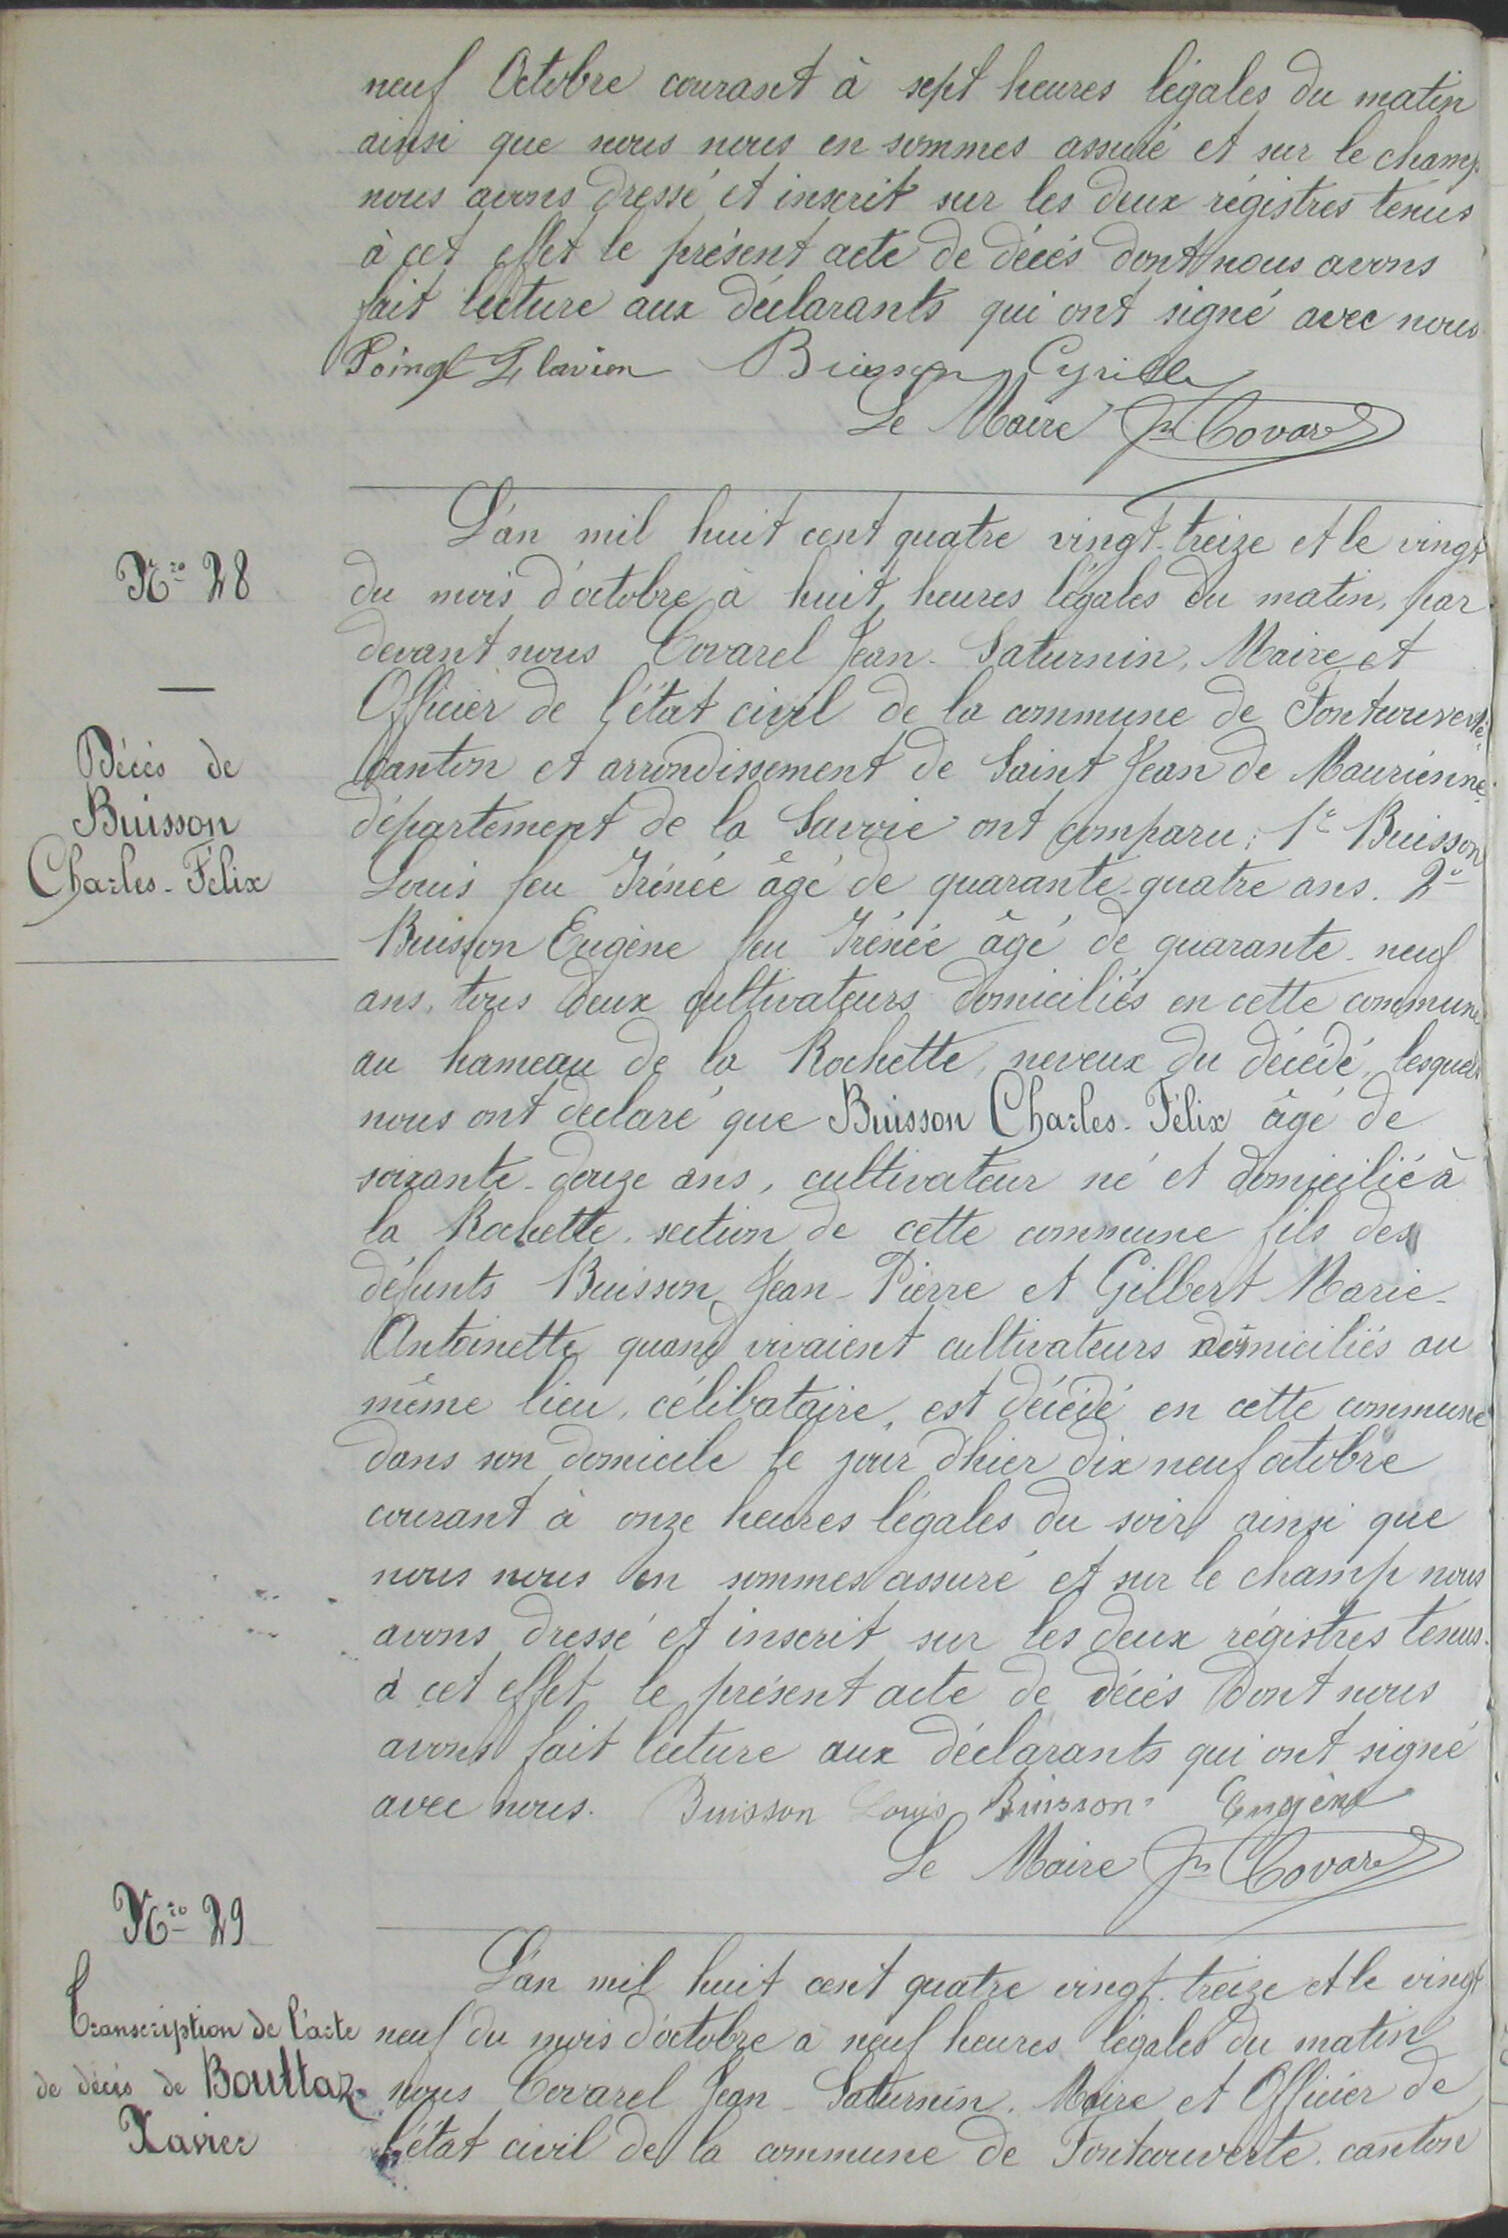 neuf Octobre courant à sept heures légales du matin
ainsi que nous nous en sommes assuré et sur le champ
nous avons dressé et inscrit sur les deux régistres tenus
à cet effet le présent acte de décès dont nous avons
fait lecture aux déclarants qui ont signé avec nous
Flavien Buisson Cyrille
Le Maire Jn Covarel
N.ro 28
Décès de
Buisson
Charles-Félix
L'an mil huit cent quatre vingt-treize et le vingt
du mois d'octobre à huit heures légales du matin, par
devant nous Covarel Jean-Saturnin, Maire et
Officier de l'état civil de la commune de Fontcouverte
canton et arrondissement de Saint Jean de Maurienne,
département de la Savoie ont comparu: 1º Buisson
Louis feu Irénée âgé de quarante-quatre ans. 2º
Buisson Eugène feu Irénée âgé de quarante-neuf
ans, tous deux cultivateurs domiciliés en cette commune
au hameau de la Rochette, neveux du décédé, lesquels
nous ont declaré que Buisson Charles-Félix âgé de
soixante-douze ans, cultivateur né et domicilié à
la Rochette, section de cette commune fils des
défunts Buisson Jean-Pierre et Gilbert Marie-
Antoinette quand vivaient cultivateurs domiciliés au
même lieu, célibataire, est décédé en cette commune
dans son domicile le jour d'hier dix neuf octobre
courant à onze heures légales du soir ainsi que
nous nous en sommes assuré et sur le champ nous
avons dressé et inscrit sur les deux régistres tenus
à cet effet le présent acte de décès dont nous
avons fait lecture aux déclarants qui ont signé
avec nous. Buisson Louis Buisson Eugène
Le Maire Jn Covarel
N.ro 29
Transcription de l'acte
de décès de Bouttaz
Xavier
L'an mil huit cent quatre vingt-treize et le vingt
neuf du mois d'octobre à neuf heures légales du matin
nous Covarel Jean-Saturnin, Maire et Officier de
l'état civil de la commune de Fontcouverte, canton